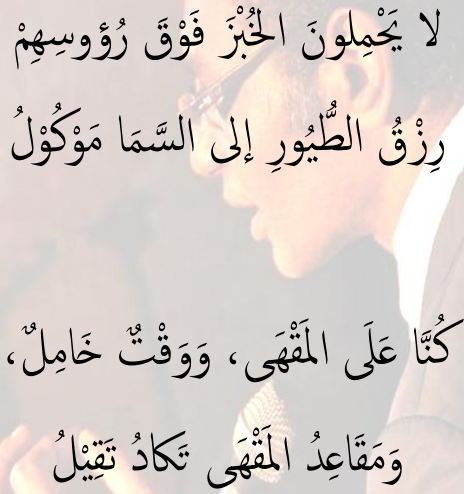 لا يَحْمِلونَ الخُبْزَ فَوْقَ رُؤوسِهِمْ
رِزْقُ الطُّيُورِ إلى السَّمَا مَوْكُوْلُ
كُنَّا عَلَى المَقْهَى، وَوَقْتٌ خَامِلٌ،
وَمَقَاعِدُ المَقْهَى تَكادُ تَقِيْلُ